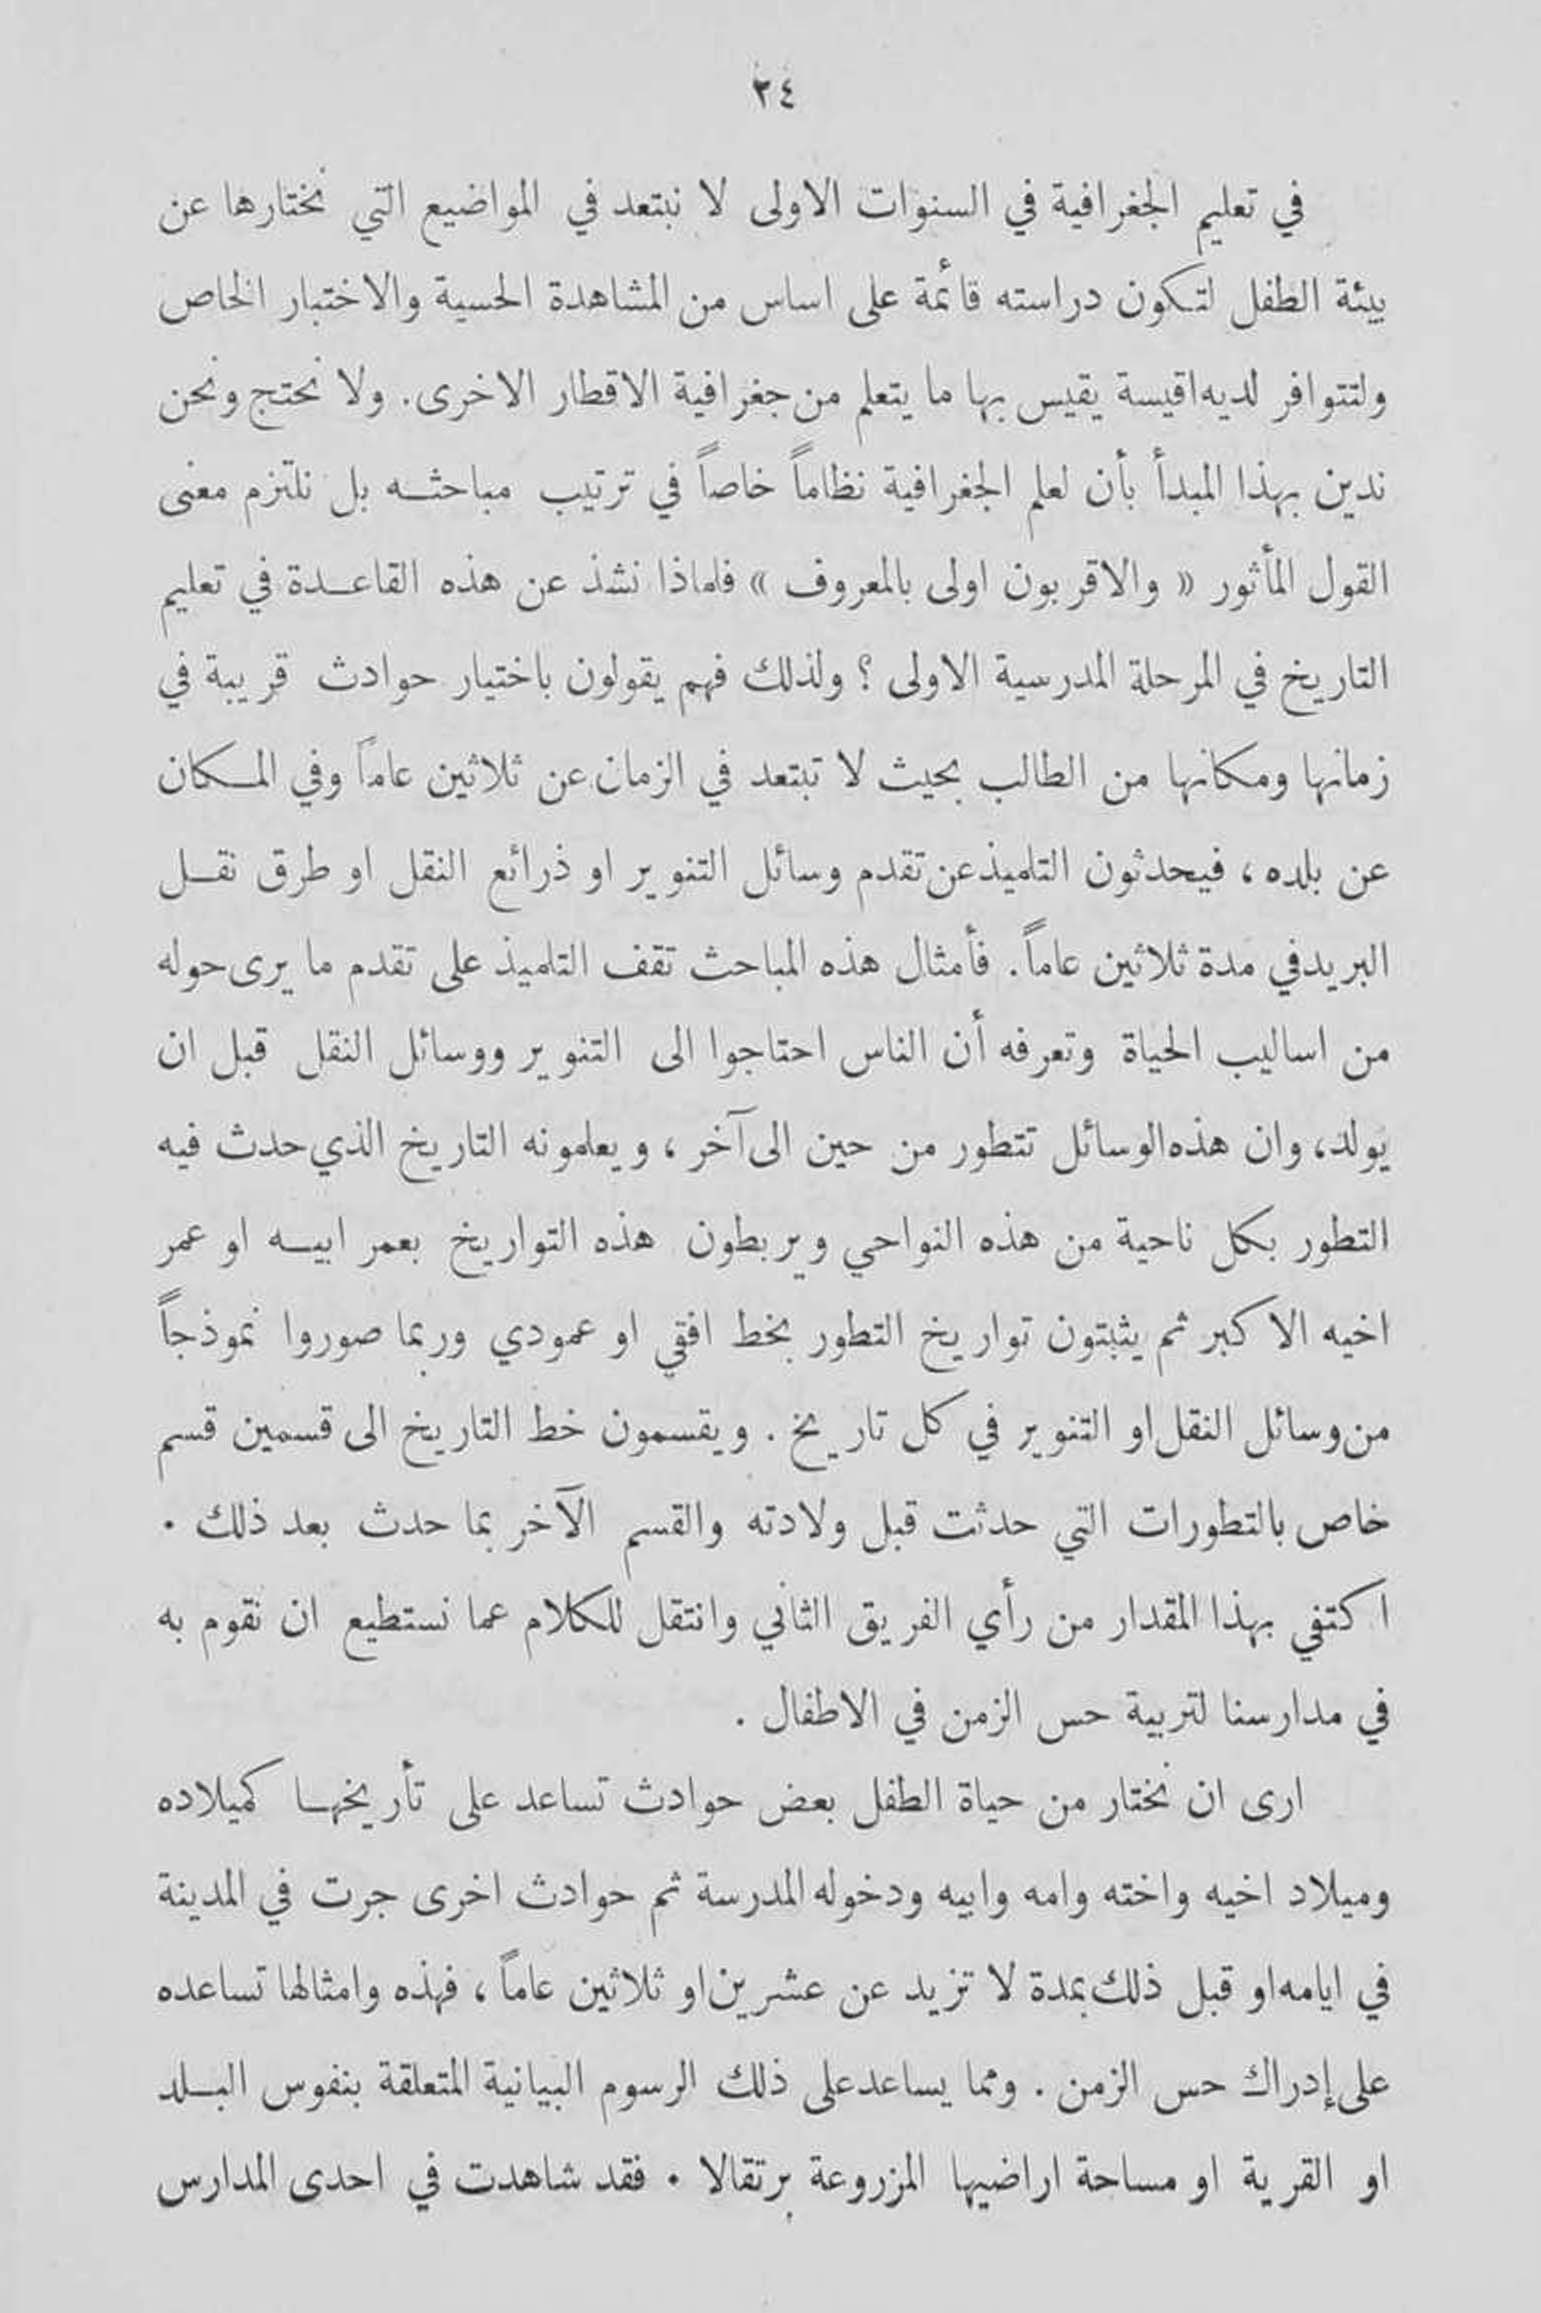 ٢٤
في تعليم الجغرافية في السنوات الاولى لا نبتعد في المواضيع التي نختارها عن
بيئة الطفل لتكون دراسته قائمة على اساس من المشاهدة الحسية والاختبار الخاص
ولتتوافر لديه اقيسة يقيس بها ما يتعلم من جغرافية الاقطار الاخرى. ولا نحتج ونحن
ندين بهذا المبدأ بأن لعلم الجغرافية نظاماً خاصاً في ترتيب مباحثه بل نلتزم معنى
القول المأثور « والاقربون اولى بالمعروف » فلماذا نشذ عن هذه القاعدة في تعليم
التاريخ في المرحلة المدرسية الاولى ؟ ولذلك فهم يقولون باختيار حوادث قريبة في
زمانها ومكانها من الطالب بحيث لا تبتعد في الزمان عن ثلاثين عاماً وفي المكان
عن بلده ، فيحدثون التلميذ عن تقدم وسائل التنوير او ذرائع النقل او طرق نقل
البريد في مدة ثلاثين عاماً. فأمثال هذه المباحث تقف التلميذ على تقدم ما يرى حوله
من اساليب الحياة وتعرفه أن الناس احتاجوا الى التنوير ووسائل النقل قبل ان
يولد، وان هذه الوسائل تتطور من حين الى آخر ، ويعلمونه التاريخ الذي حدث فيه
التطور بكل ناحية من هذه النواحي ويربطون هذه التواريخ بعمر ابيه او عمر
اخيه الاكبر ثم يثبتون تواريخ التطور بخط افقي او عمودي وربما صوروا نموذجاً
من وسائل النقل او التنوير في كل تاريخ . ويقسمون خط التاريخ الى قسمين قسم
خاص بالتطورات التي حدثت قبل ولادته والقسم الآخر بما حدث بعد ذلك .
اكتفي بهذا المقدار من رأي الفريق الثاني وانتقل للكلام عما نستطيع ان نقوم به
في مدارسنا لتربية حس الزمن في الاطفال .
ارى ان نختار من حياة الطفل بعض حوادث تساعد على تأريخها كميلاده
وميلاد اخيه واخته وامه وابيه ودخوله المدرسة ثم حوادث اخرى جرت في المدينة
في ايامه او قبل ذلك بمدة لا تزيد عن عشرين او ثلاثين عاماً ، فهذه وامثالها تساعده
على إدراك حس الزمن . ومما يساعد على ذلك الرسوم البيانية المتعلقة بنفوس البلد
او القرية او مساحة اراضيها المزروعة برتقالا . فقد شاهدت في احدى المدارس